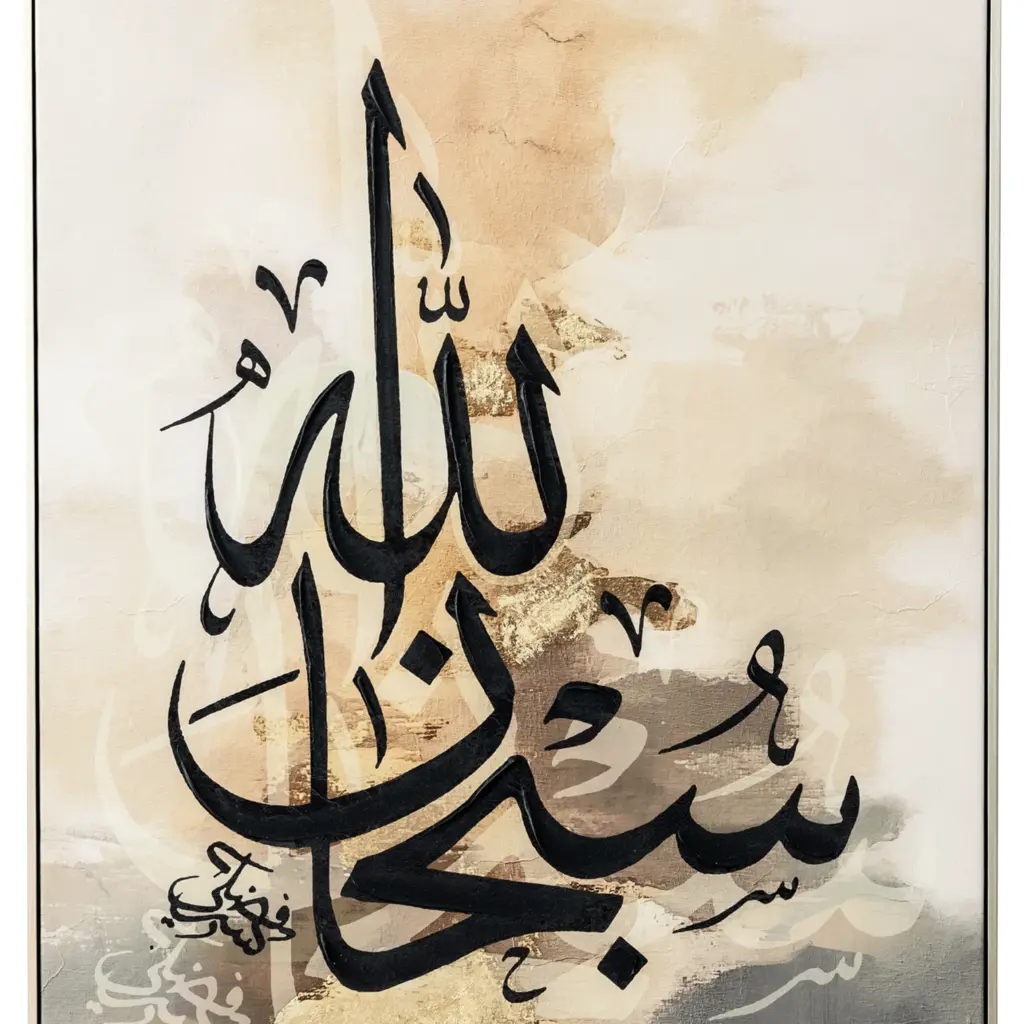 سُبْحَانَ
اللّٰهِ